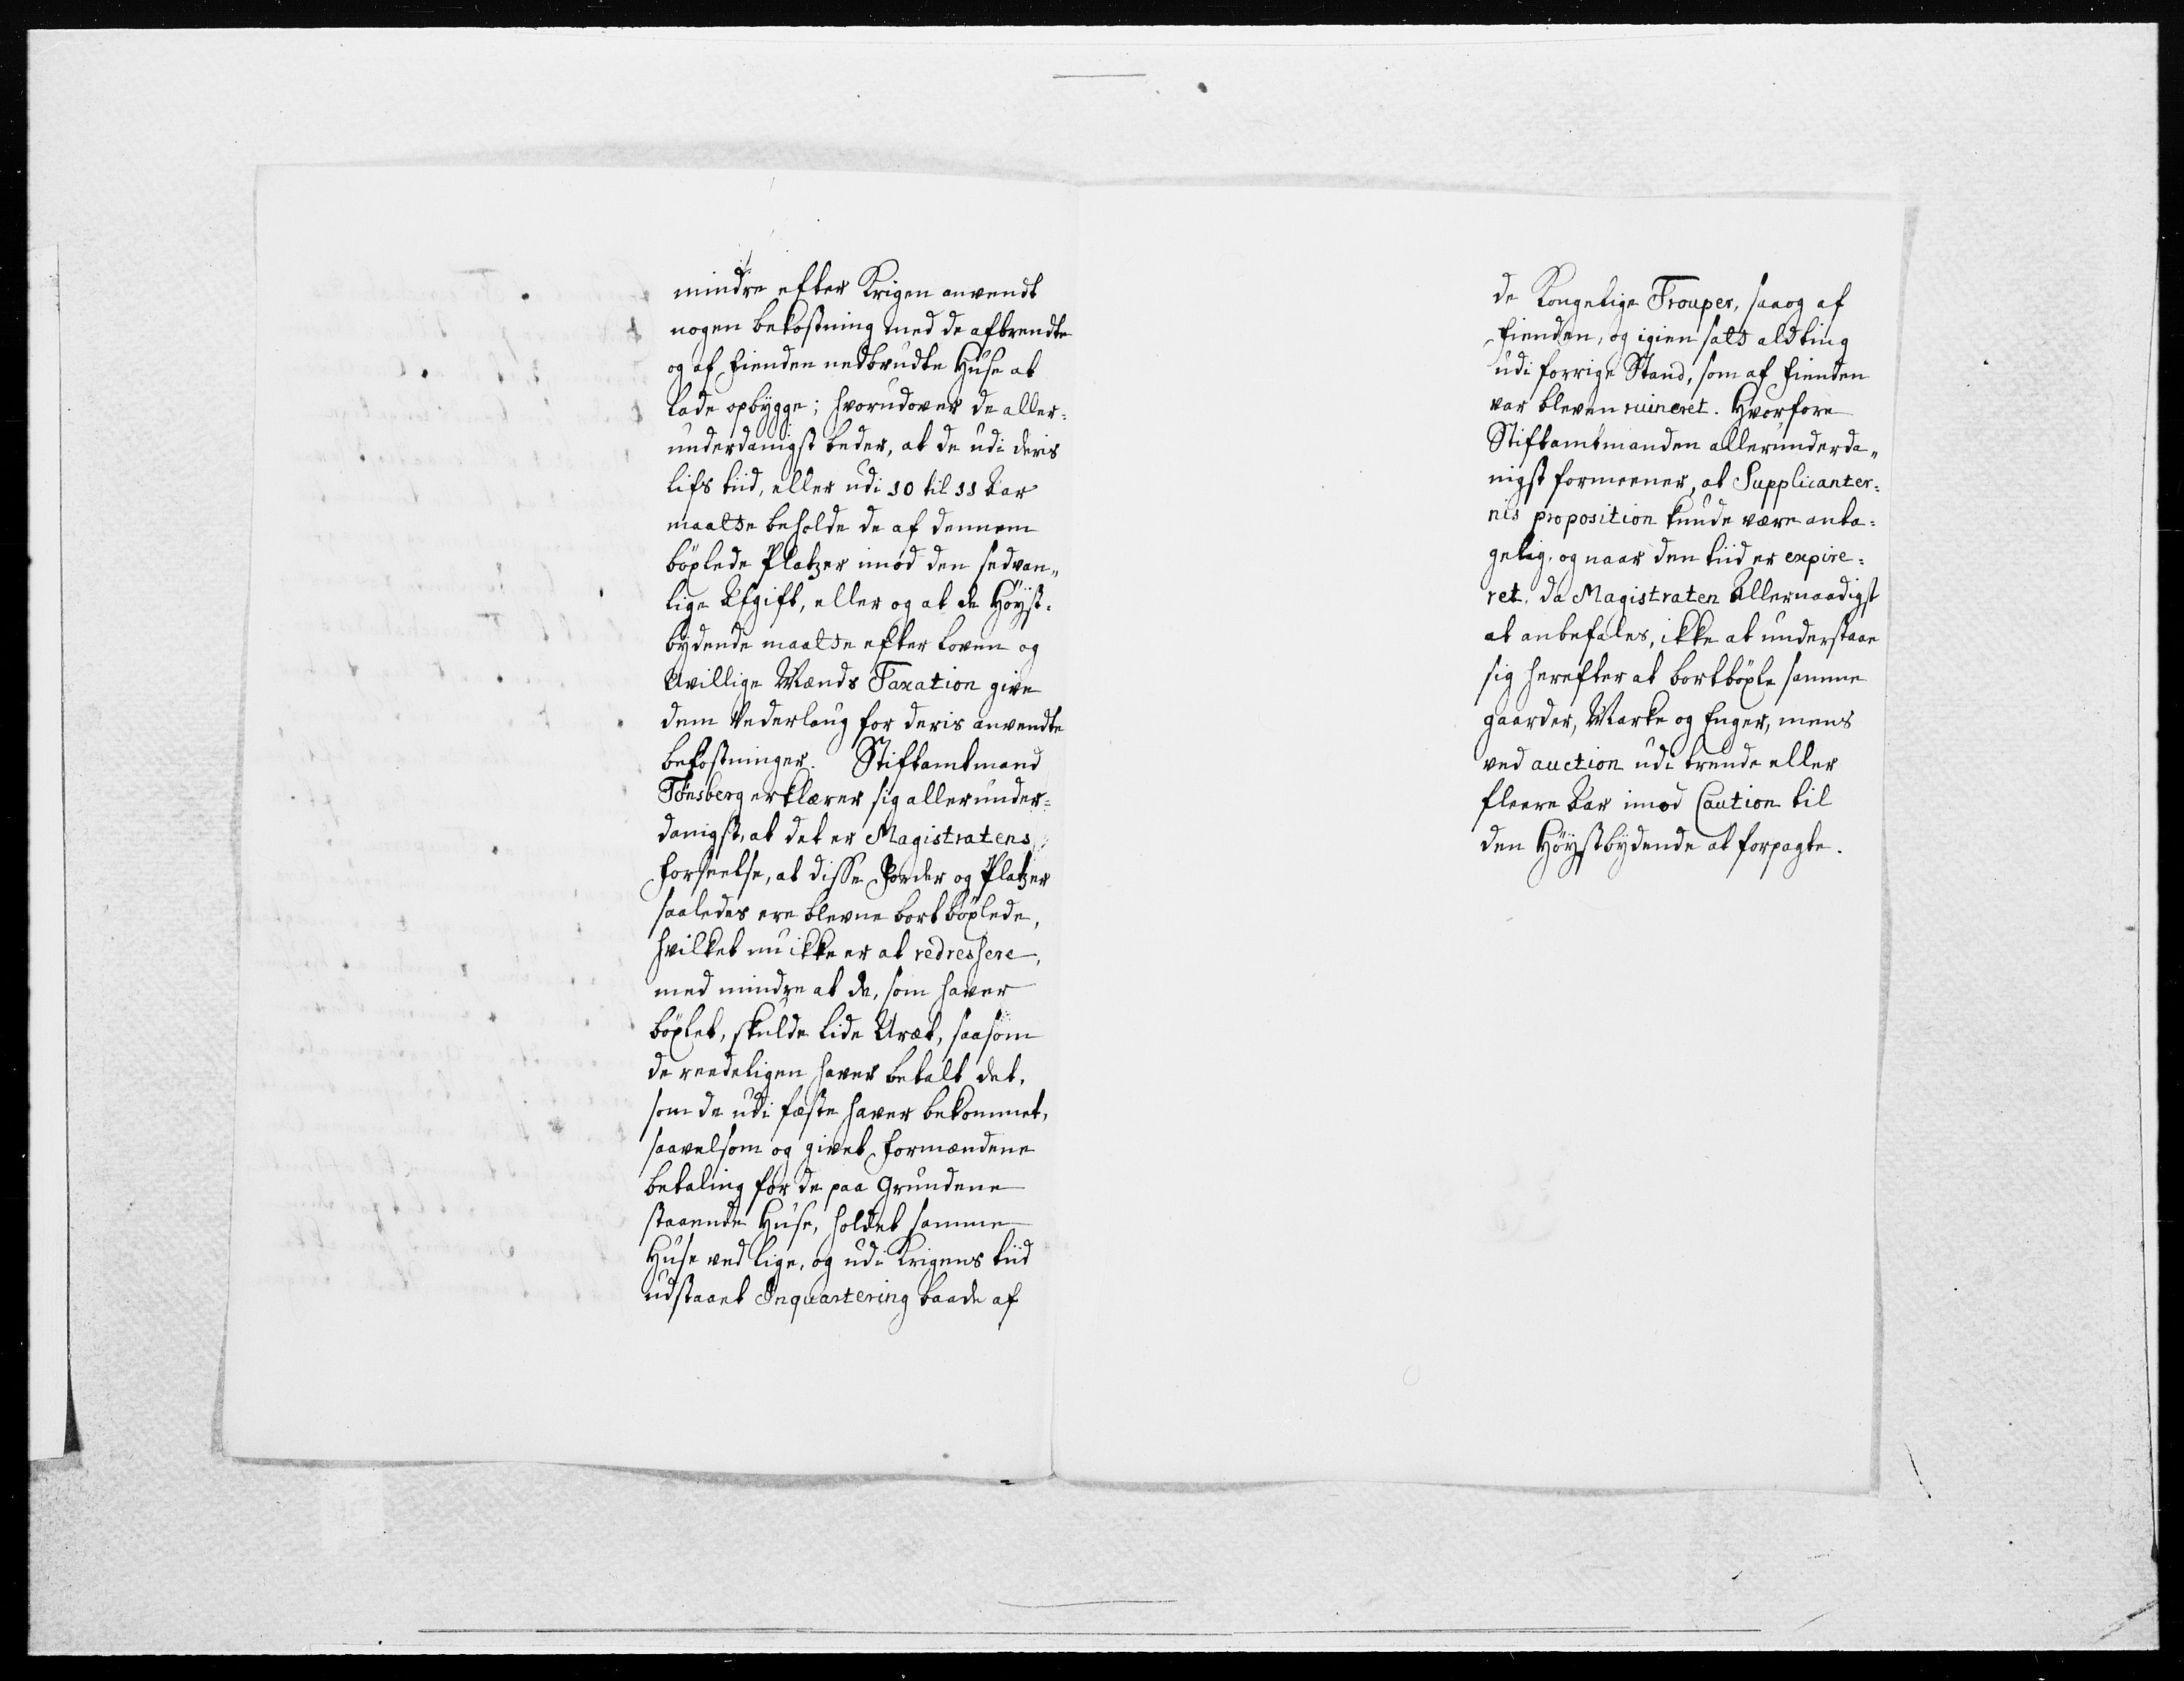 mindre efter Krigen anvendt
nogen bekostning med de afbrendte
og af Fienden nedbrudte Huse at
lade opbygge; hvorudover de aller-
underdanigst beder, at de udi deris
lifs tiid, eller udi 10 til 11 Aar
maatte beholde de af dennem
böxlede Platzer imod den sedvan„
lige Afgift, eller og at de Höyst-
bydende maatte efter Loven og
Uvillige Mænds Taxation give
dem Vederlaug for deris anvendte
bekostninger. Stiftamtmand
Tönsberg erklærer sig allerunder-
danigst, at det er Magistratens
forseelse, at disse Jorder og Platzer
saaledes ere blevne bortböxlede,
hvilket nu ikke er at redressere,
med mindre at de, som haver
böxlet, skulde lide Uræt, saasom
de reedeligen haver betalt det,
som de udi fæste haver bekommet,
saavelsom og givet Formændene
betaling for de paa Grundene
staaende Huse, holdet samme
Huse ved lige, og udi Krigens tiid
udstaaet Inquartering baade af
de Kongelige Trouper, saa og af
Fienden, og igien satt alding
udi forrige Stand, som af Fienden
var bleven ruineret. Hvorfore
Stiftamtmanden allerunderda„
nigst formeener, at Supplicanter-
nis proposition kunde være anta-
gelig, og naar den tiid er expire-
ret, da Magistraten Allernaadigst
at anbefales, ikke at understaae
sig herefter at bortböxle samme
gaarder, Marke og Enger, mens
ved auction udi trende eller
fleere Aar imod Caution til
den Höystbydende at forpagte.